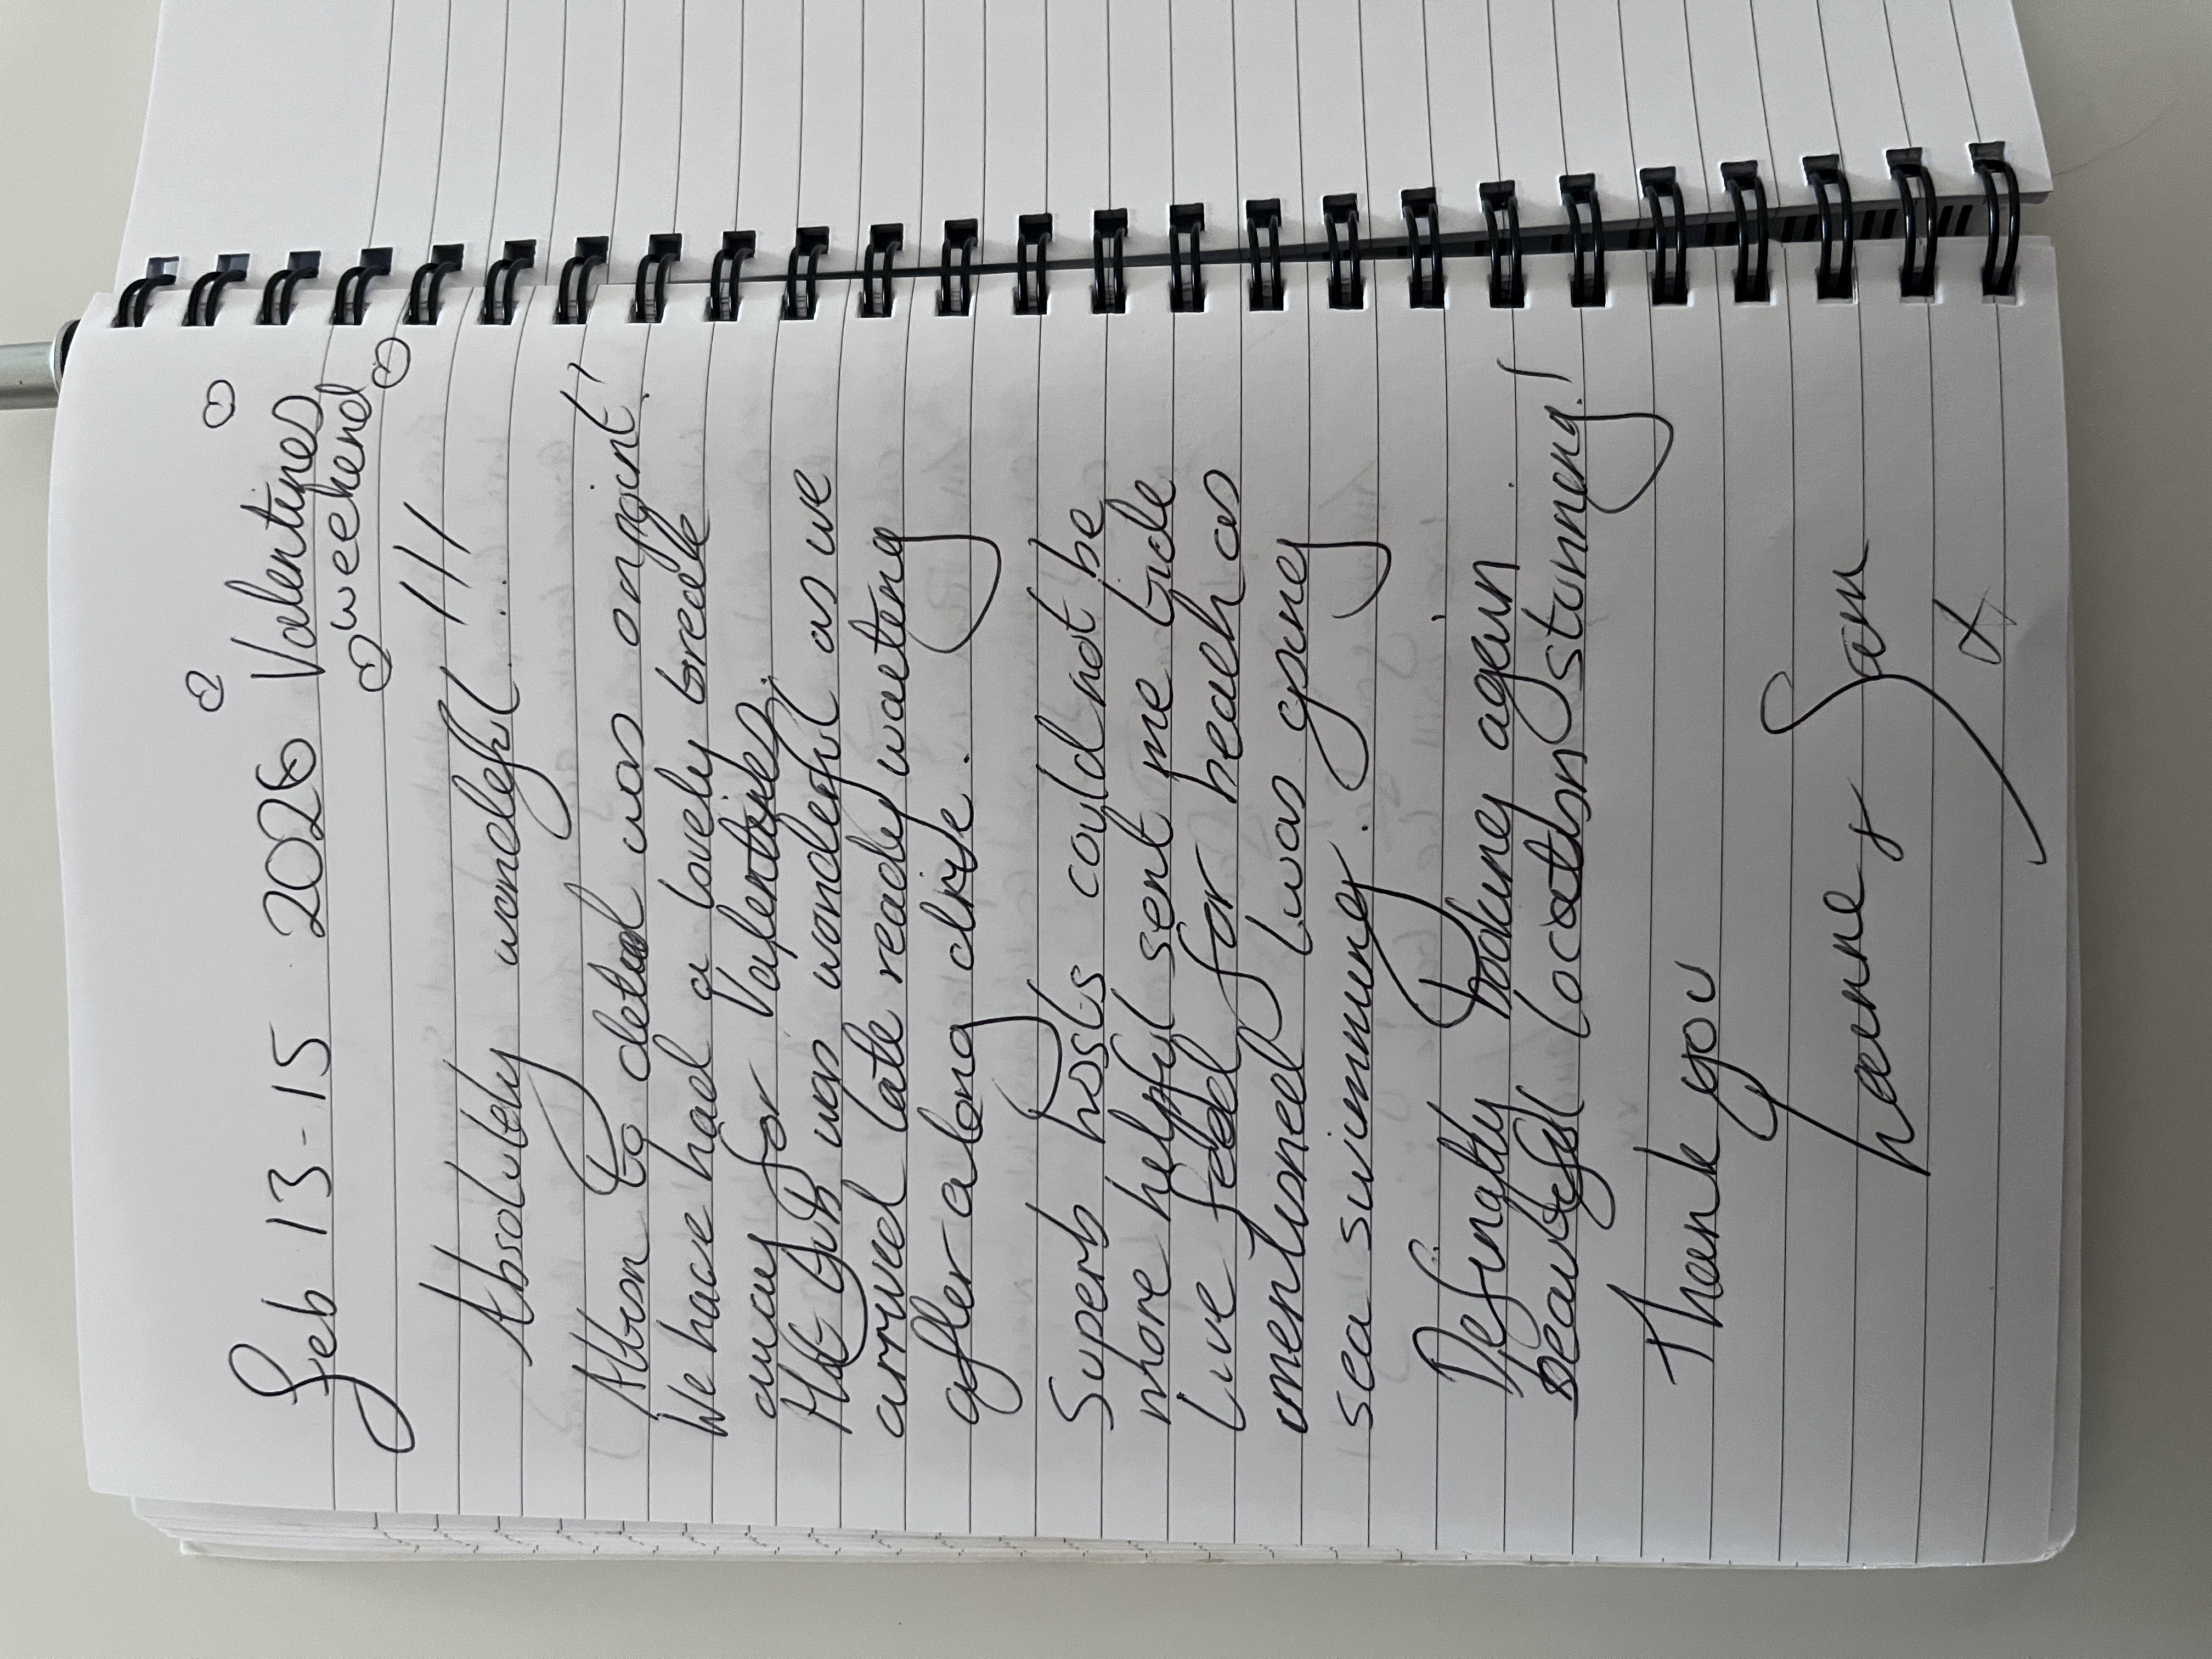 Feb 13-15 2026 Valentines
weekend
Absolutely wonderful!!!
Attion to detail was on point!
We have had a lovely break
away for Valentines.
Hot Tub was wonderful as we
arrived late ready waiting
after a long drive.
Superb hosts could not be
more helpful sent me tide
Live feed for beach as
mentioned I was going
sea swimming.
Definatly booking again
beautiful location stunning!
Thank you
&
Sam
x